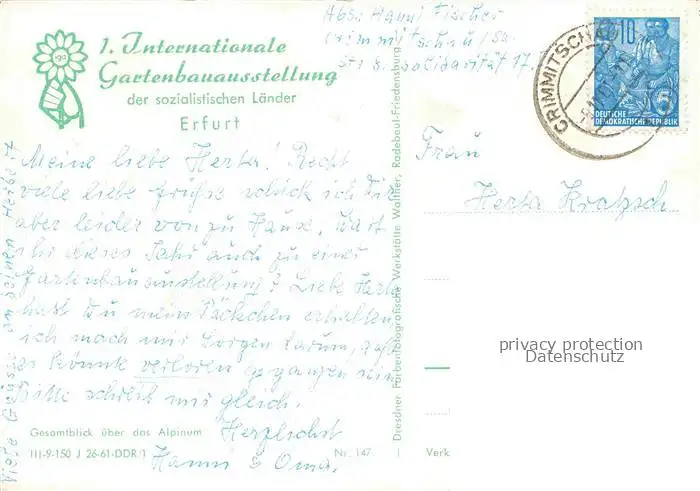 Abs: Hanni Fischer
Crimmitschau/Sa.
Str. d. Solidarität 17
1. Internationale
Gartenbauausstellung
der sozialistischen Länder
Erfurt
iga
CRIMMITSCHAU
10
5
DEUTSCHE
DEMOKRATISCHE REPUBLIK
Meine liebe Herta! Recht
viele liebe Grüße schick ich Dir
aber leider von zu Hause. Wart
Ihr dieses Jahr auch zu einer
Gartenbauausstellung? Liebe Herta
hast Du mein Päckchen erhalten,
ich mach mir Sorgen darum, daß
es könnte verloren gegangen sein
Bitte schreib mir gleich.
Herzlichst
Hanni & Oma.
Viele Grüsse an Deinen Herbert
Frau
Herta Kratzsch
privacy protection
Datenschutz
Gesamtblick über das Alpinum
III-9-150 J 26-61-DDR/1
Nr. 147
Verk
Dresdner Farbenfotografische Werkstätte Walther, Radebeul-Friedensburg